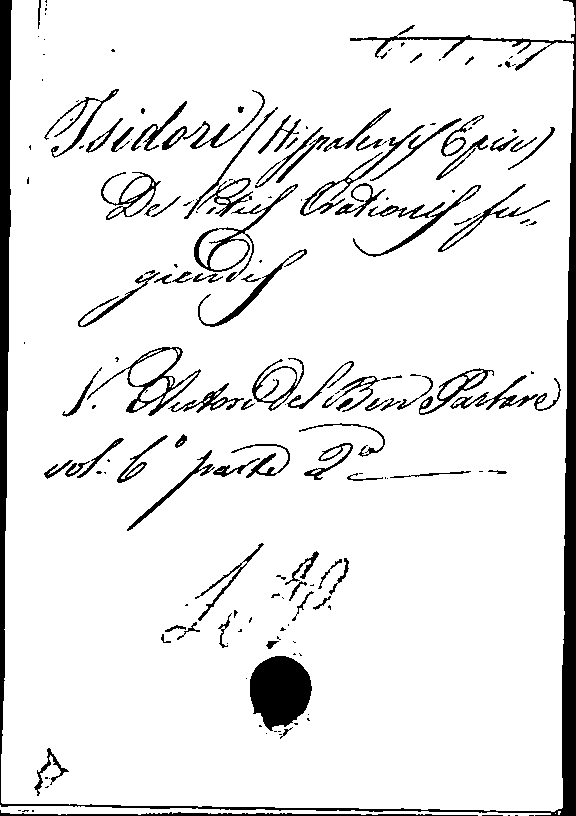 6, 1, 21
Isidori (Hispalensis Episc)
De Vitiis Orationis fu„
giendis
V. Autori Del Ben Parlare
vol: 6° parte 2ª